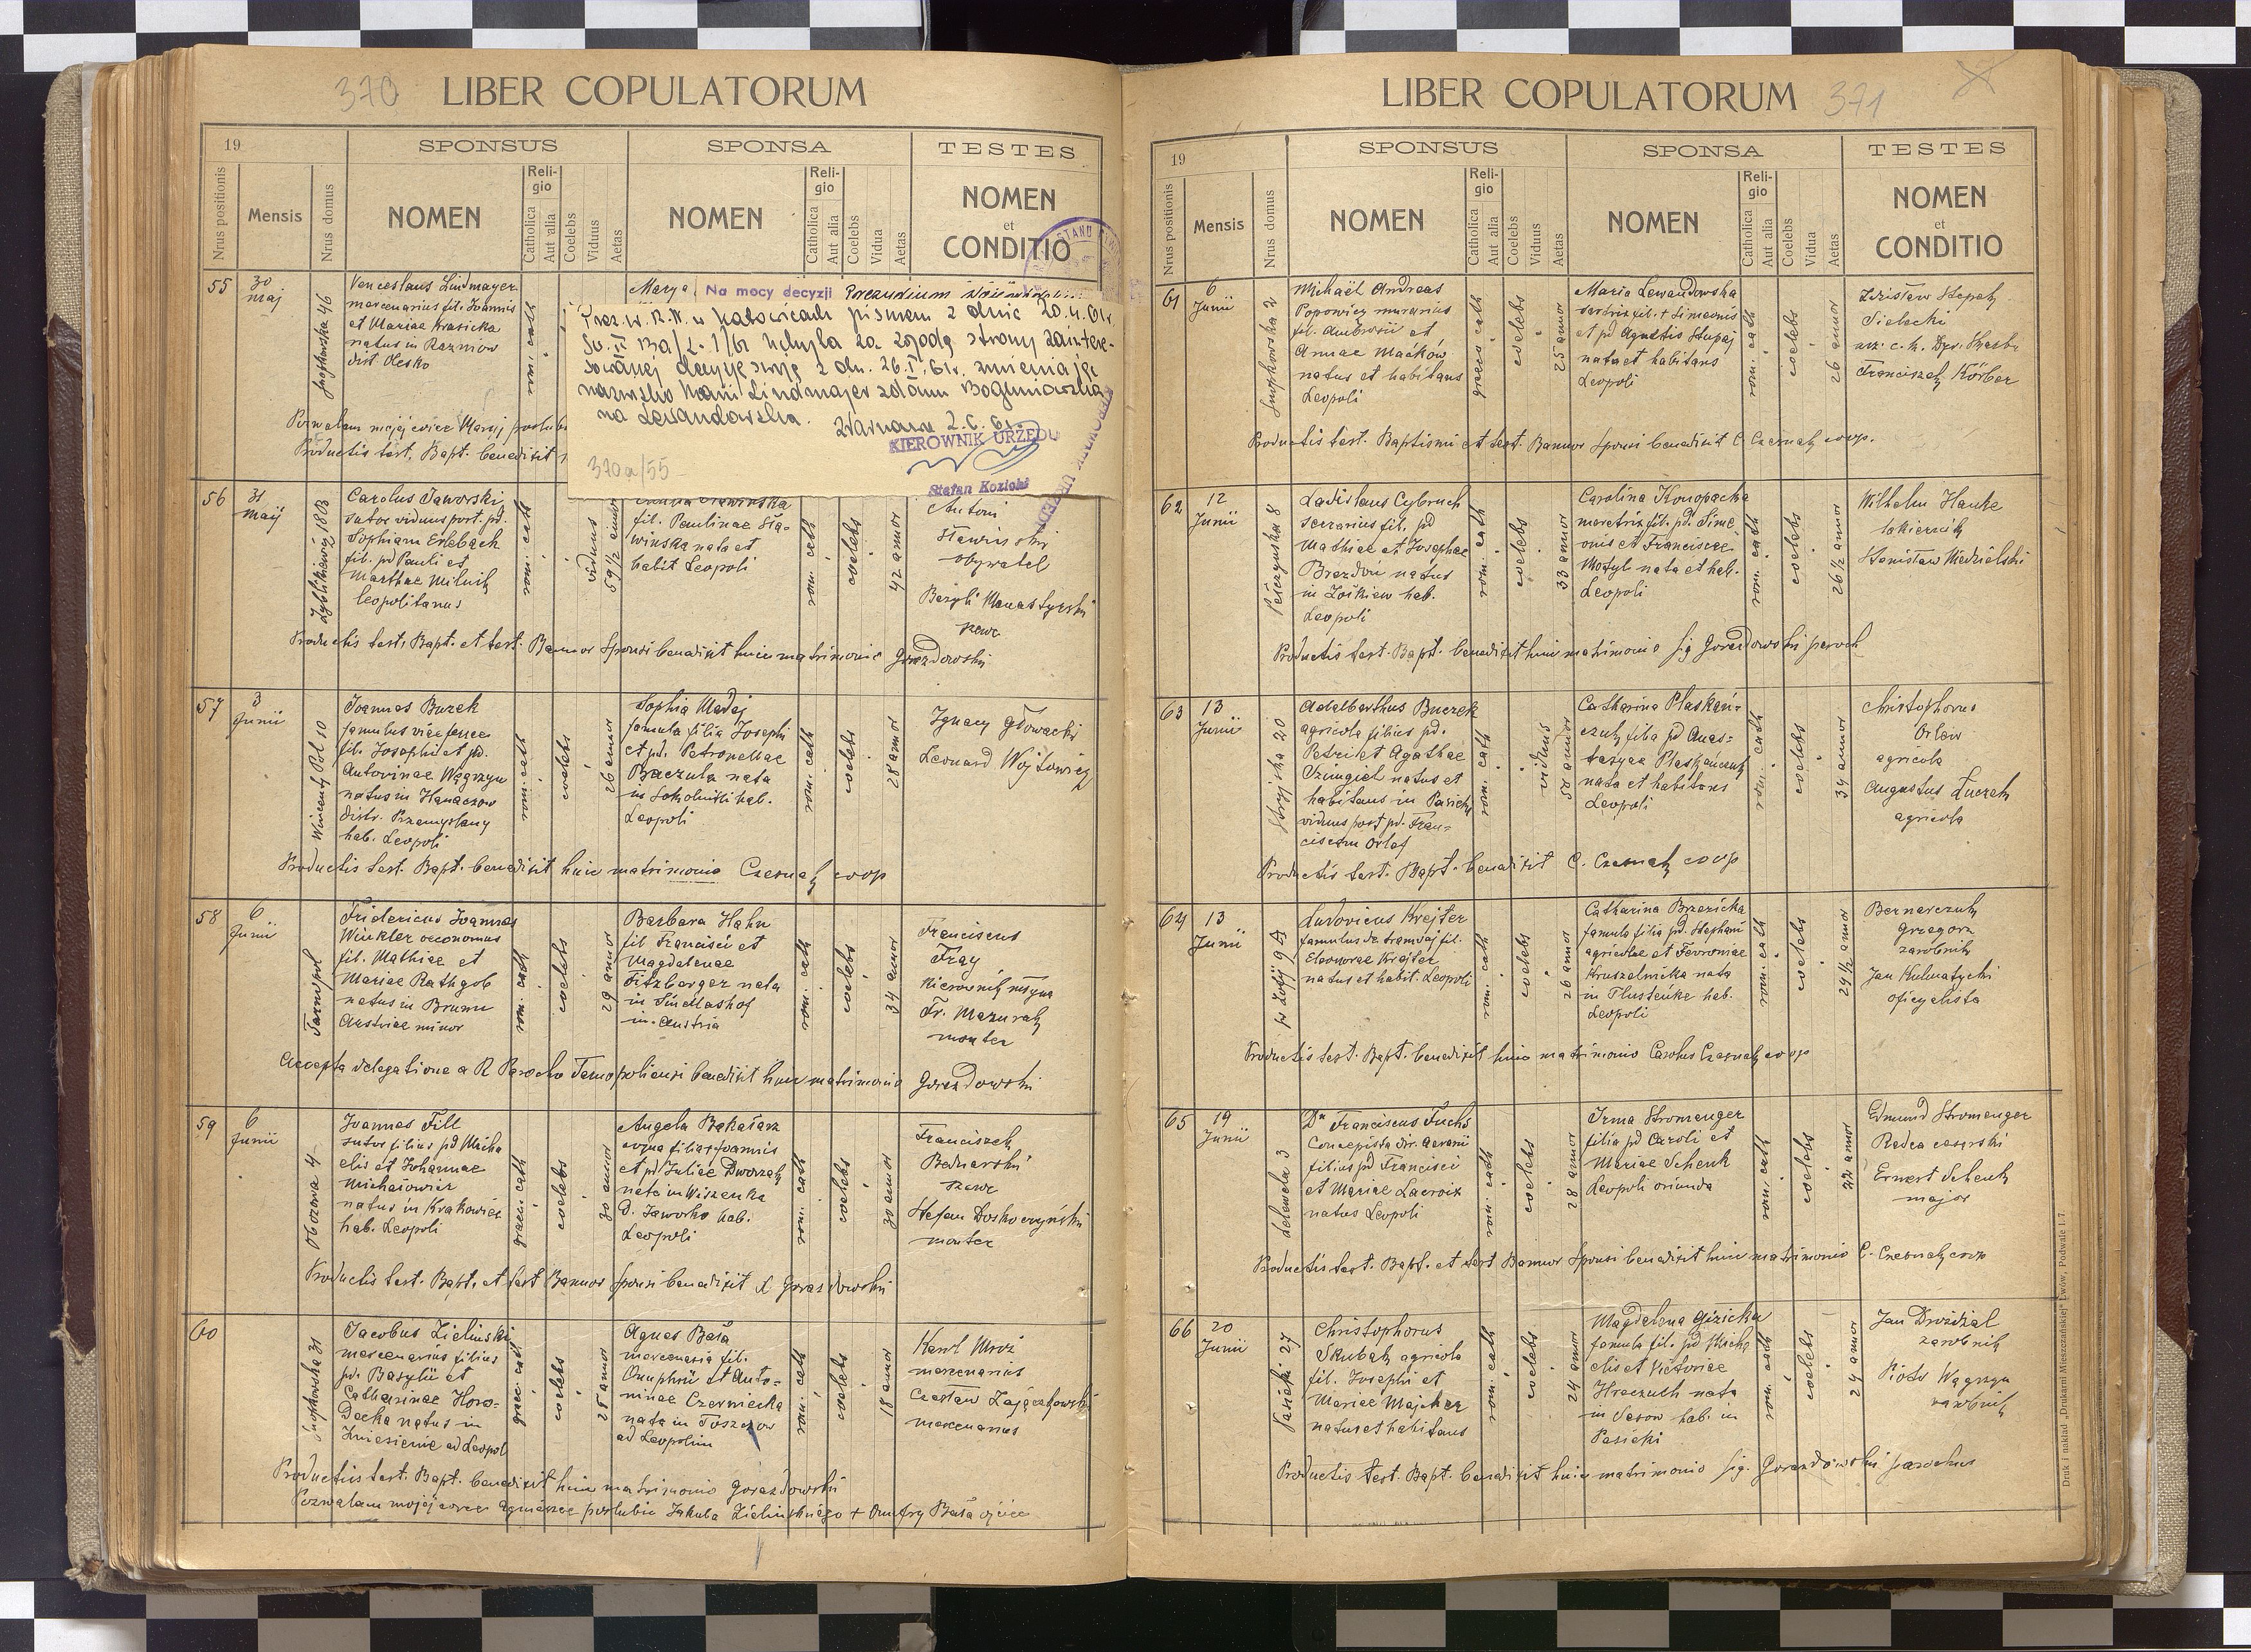 370
LIBER COPULATORUM
19
SPONSUS
SPONSA
TESTES
Nrus positionis
Mensis
Nrus domus
NOMEN
Religio
Catholica
Aut alia
Coelebs
Viduus
Aetas
NOMEN
Religio
Catholica
Aut alia
Coelebs
Vidua
Aetas
NOMEN
et
CONDITIO
55
30
maj
46
Venceslaus Lindmayer
mercenarius fil. Joannis
et Mariae Krasicka
natus in Razniow
dist Olesko
Marya
Na mocy decyzji Prezydium
Prez. W. R. N. w Katowicach pismem z dnia 20.4.61r.
uchyla za zgodą strony zainteresowanej
decyzję swoją z dn. 26.I.61r. zmieniając
nazwisko Marii Lindmajer z domu
na Lewandowska.
Warszawa 2.6.61
KIEROWNIK URZĘDU
370a/55
Stefan
Pozwalam mojej córce Maryi poślubić
Productis test. Bapt. benedixit
56
31
Maij
1803
Carolus Jaworski
sutor viduus post. pd.
Sophiam Erlebach
fil. pd Pauli et
Marthae Milnik
leopolitanus
rom. cath
viduus
59 1/2 annor
fil. Paulinae Sta-
winska nata et
habit Leopoli
rom. cath
coelebs
42 annor
Antoni
Stawinski
obywatel
Bazyli Manastyrski
szewc
Productis test. Bapt. et test. Bannor Sponsi benedixit huic matrimonio Gorazdowski
57
3
Junii
Wincenty Pol 10
Joannes Buzek
famulus
fil. Josephi et pd.
Antoninae Węgrzyn
natus in Hanaczow
distr. Przemyslany
hab. Leopoli
rom. cath
coelebs
26 annor
Sophia Madej
famula filia Josephi
et pd. Petronellae
Baczula nata
in Sokolniki hab.
Leopoli
rom. cath
coelebs
28 annor
Ignacy Głowacki
Leonard Wojtowicz
Productis test. Bapt. benedixit huic matrimonio Czesnak coop
58
6
Junii
Tarnopol
Fridericus Joannes
Winkler oeconomus
fil. Mathiae et
Mariae Rathgob
natus in Brunn
Austriae minor
rom. cath
coelebs
29 annor
Barbara Hahn
fil Francisci et
Magdalenae
Fitzberger nata
in Sindlashof
in Austria
rom. cath
coelebs
34 annor
Franciscus
Fray
Kierownik młyna
Fr. Mazurak
monter
Accepta delegatione a R Parocho Tarnopoliensi benedixit huic matrimonio Gorazdowski
59
6
Junii
Obozowa 4
Joannes Fill
sutor filius pd Micha
elis et Johannae
Michajłowicz
natus in Krakowiec
hab. Leopoli
graeci cath
coelebs
30 annor
Angela Bąkałarz
coqua filia Joannis
et pd Juliae Dworzak
nata in Wiszenka
d. Jaworko hab.
Leopoli
rom. cath
coelebs
30 annor
Franciszek
Bednarski
szewc
Stefan Doskoczyński
monter
Productis test. Bapt. et test Bannor sponsi benedixit X Gorazdowski
60
31
Jacobus Zielinski
mercenarius filius
pd. Basylii et
Catharinae Horo-
decka natus in
Zniesienie ad Leopol
graec. cath.
coelebs
25 annor
Agnes Basa
mercenaria fil.
Onuphrii et Anto-
ninae Czerniecka
nata in Toszczow
ad Leopolim
rom. cath
coelebs
18 annor
Karol Mroz
mercenarius
Czesław Zajączkowski
mercenarius
Productis test. Bapt. benedixit huic matrimonio Gorazdowski
Pozwalam mojej córce Agnieszce poślubić Jakuba Zielinskiego + Onufry Basa ojciec
LIBER COPULATORUM
371
19
SPONSUS
SPONSA
TESTES
Nrus positionis
Mensis
Nrus domus
NOMEN
Religio
Catholica
Aut alia
Coelebs
Viduus
Aetas
NOMEN
Religio
Catholica
Aut alia
Coelebs
Vidua
Aetas
NOMEN
et
CONDITIO
61
6
Junii
Michaël Andreas
Popowicz murarius
fil. Ambrosii et
Annae Maćków
natus et habitans
Leopoli
graeco cath
coelebs
25 annor
Maria Lewandowska
sartrix fil. + Simeonis
et pd Agnetis Stupaj
nata et habitans
Leopoli
rom. cath
coelebs
26 annor
Zdzisław
Sielecki
Franciszek Körber
Productis test. Baptismi et test. Bannor Sponsi benedixit C. Czesnak coop.
62
12
Junii
Pełczyńska 8
Ladislaus Cybruch
serrarius fil. pd
Mathiae et Josephae
Brezdoń natus
in Żołkiew hab.
Leopoli
rom. cath
coelebs
33 annor
Carolina Konopacka
fil. pd. Sime
onis et Franciscae
Motyl nata et hab.
Leopoli
rom. cath
coelebs
26 1/2 annor
Wilhelm Hanke
lakiernik
Stanisław Niedzielski
Productis test. Bapt. benedixit huic matrimonio sig Gorazdowski paroch
63
13
Junii
Stryjska 20
Adalbarthus Buczek
agricola filius pd.
Petri et Agathae
Czingiel natus et
habitans in Pasieki
viduus post pd. Fran-
ciscam Orlof
rom. cath
viduus
50 annor
Catharina Płaskoń-
czuk filia pd Anas-
tasyae Płaskończuk
nata et habitans
Leopoli
rom. cath
coelebs
34 annor
Christophorus
Orłow
agricola
Augustus Łuczek
agricola
Productis test. Bapt. benedixit C. Czesnak coop
64
13
Junii
Ludovicus Krejter
famulus de tramwaj fil.
Eleonorae Krejter
natus et habit. Leopoli
rom. cath
coelebs
26 annor
Catharina Brzezicka
famula filia pd. Stephani
agricolae et Fevroniae
Kruszelnicka nata
in Tlustenke hab.
Leopoli
rom. cath
coelebs
24 1/2 annor
Bernarczuk
Grzegorz
zarobnik
Jan Kulmatycki
oficyalista
Productis test. Bapt. benedixit huic matrimonio Carolus Czesnak coop
65
19
Junii
3
Dr Franciscus Fuchs
Concepista dir. aerarii
filius pd Francisci
et Mariae Lacroix
natus Leopoli
rom. cath
coelebs
28 annor
Irma Stromenger
filia pd Caroli et
Mariae Schenk
Leopoli oriunda
rom. cath
coelebs
22 annor
Edmund Stromenger
Radca cesarski
Ernest Schenk
major
Productis test. Bapt. et test Bannor Sponsi benedixit huic matrimonio C. Czesnak coop
66
20
Junii
Pasieki 27
Christophorus
Skubak agricola
fil. Josephi et
Mariae Majcher
natus et habitans
rom. cath
coelebs
24 annor
Magdalena Gizicka
famula fil. pd Micha
elis et Victoriae
Hraczuch nata
in Sasow hab. in
Pasieki
rom. cath
coelebs
24 annor
Jan Drożdżal
zarobnik
Piotr Węgrzyn
zarobnik
Productis test. Bapt. benedixit huic matrimonio sig. Gorazdowski parochus
Druk i nakład „Drukarni Mieszczańskiej" Lwów, Podwale l. 7.